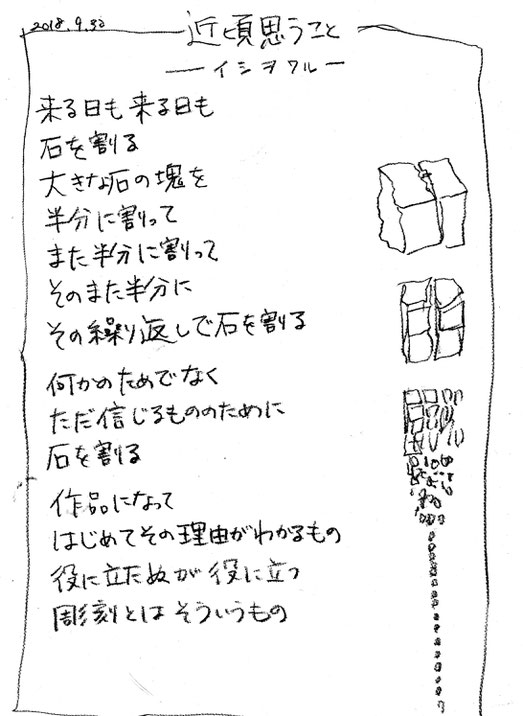 2018.9.30
近頃思うこと
ーイシヲワルー
来る日も来る日も
石を割る
大きな石の塊を
半分に割って
また半分に割って
そのまた半分に
その繰り返しで石を割る
何かのためでなく
ただ信じるもののために
石を割る
作品になって
はじめてその理由がわかるもの
役に立たぬが役に立つ
彫刻とはそういうもの